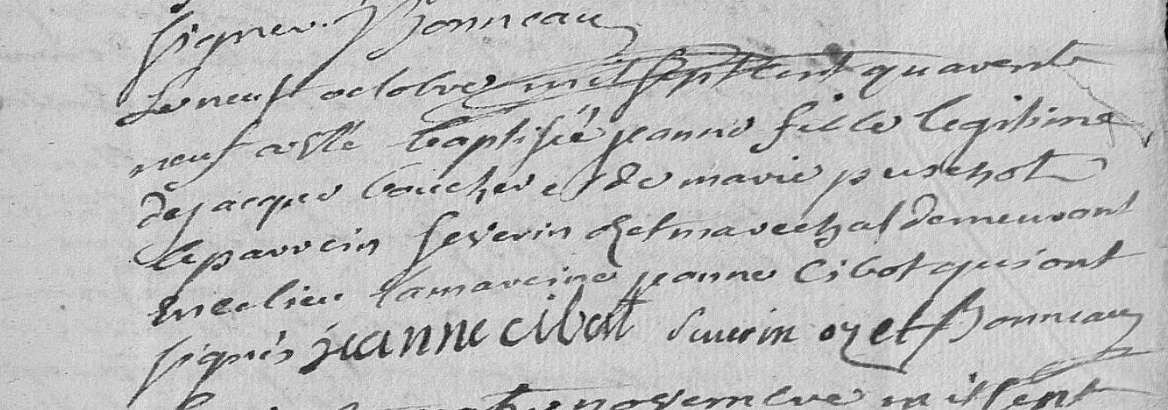 signer Bonneau
Le neuf octobre mil sept cent quarente
neuf a esté baptisée jeanne fille legitime
de jacque boucher et de marie puschot
le parrein severin ozet marechal demeurant
en ce lieu la mareine jeanne Cibot qui ont
signés jeanne cibot severin ozet Bonneau
novembre mil sept